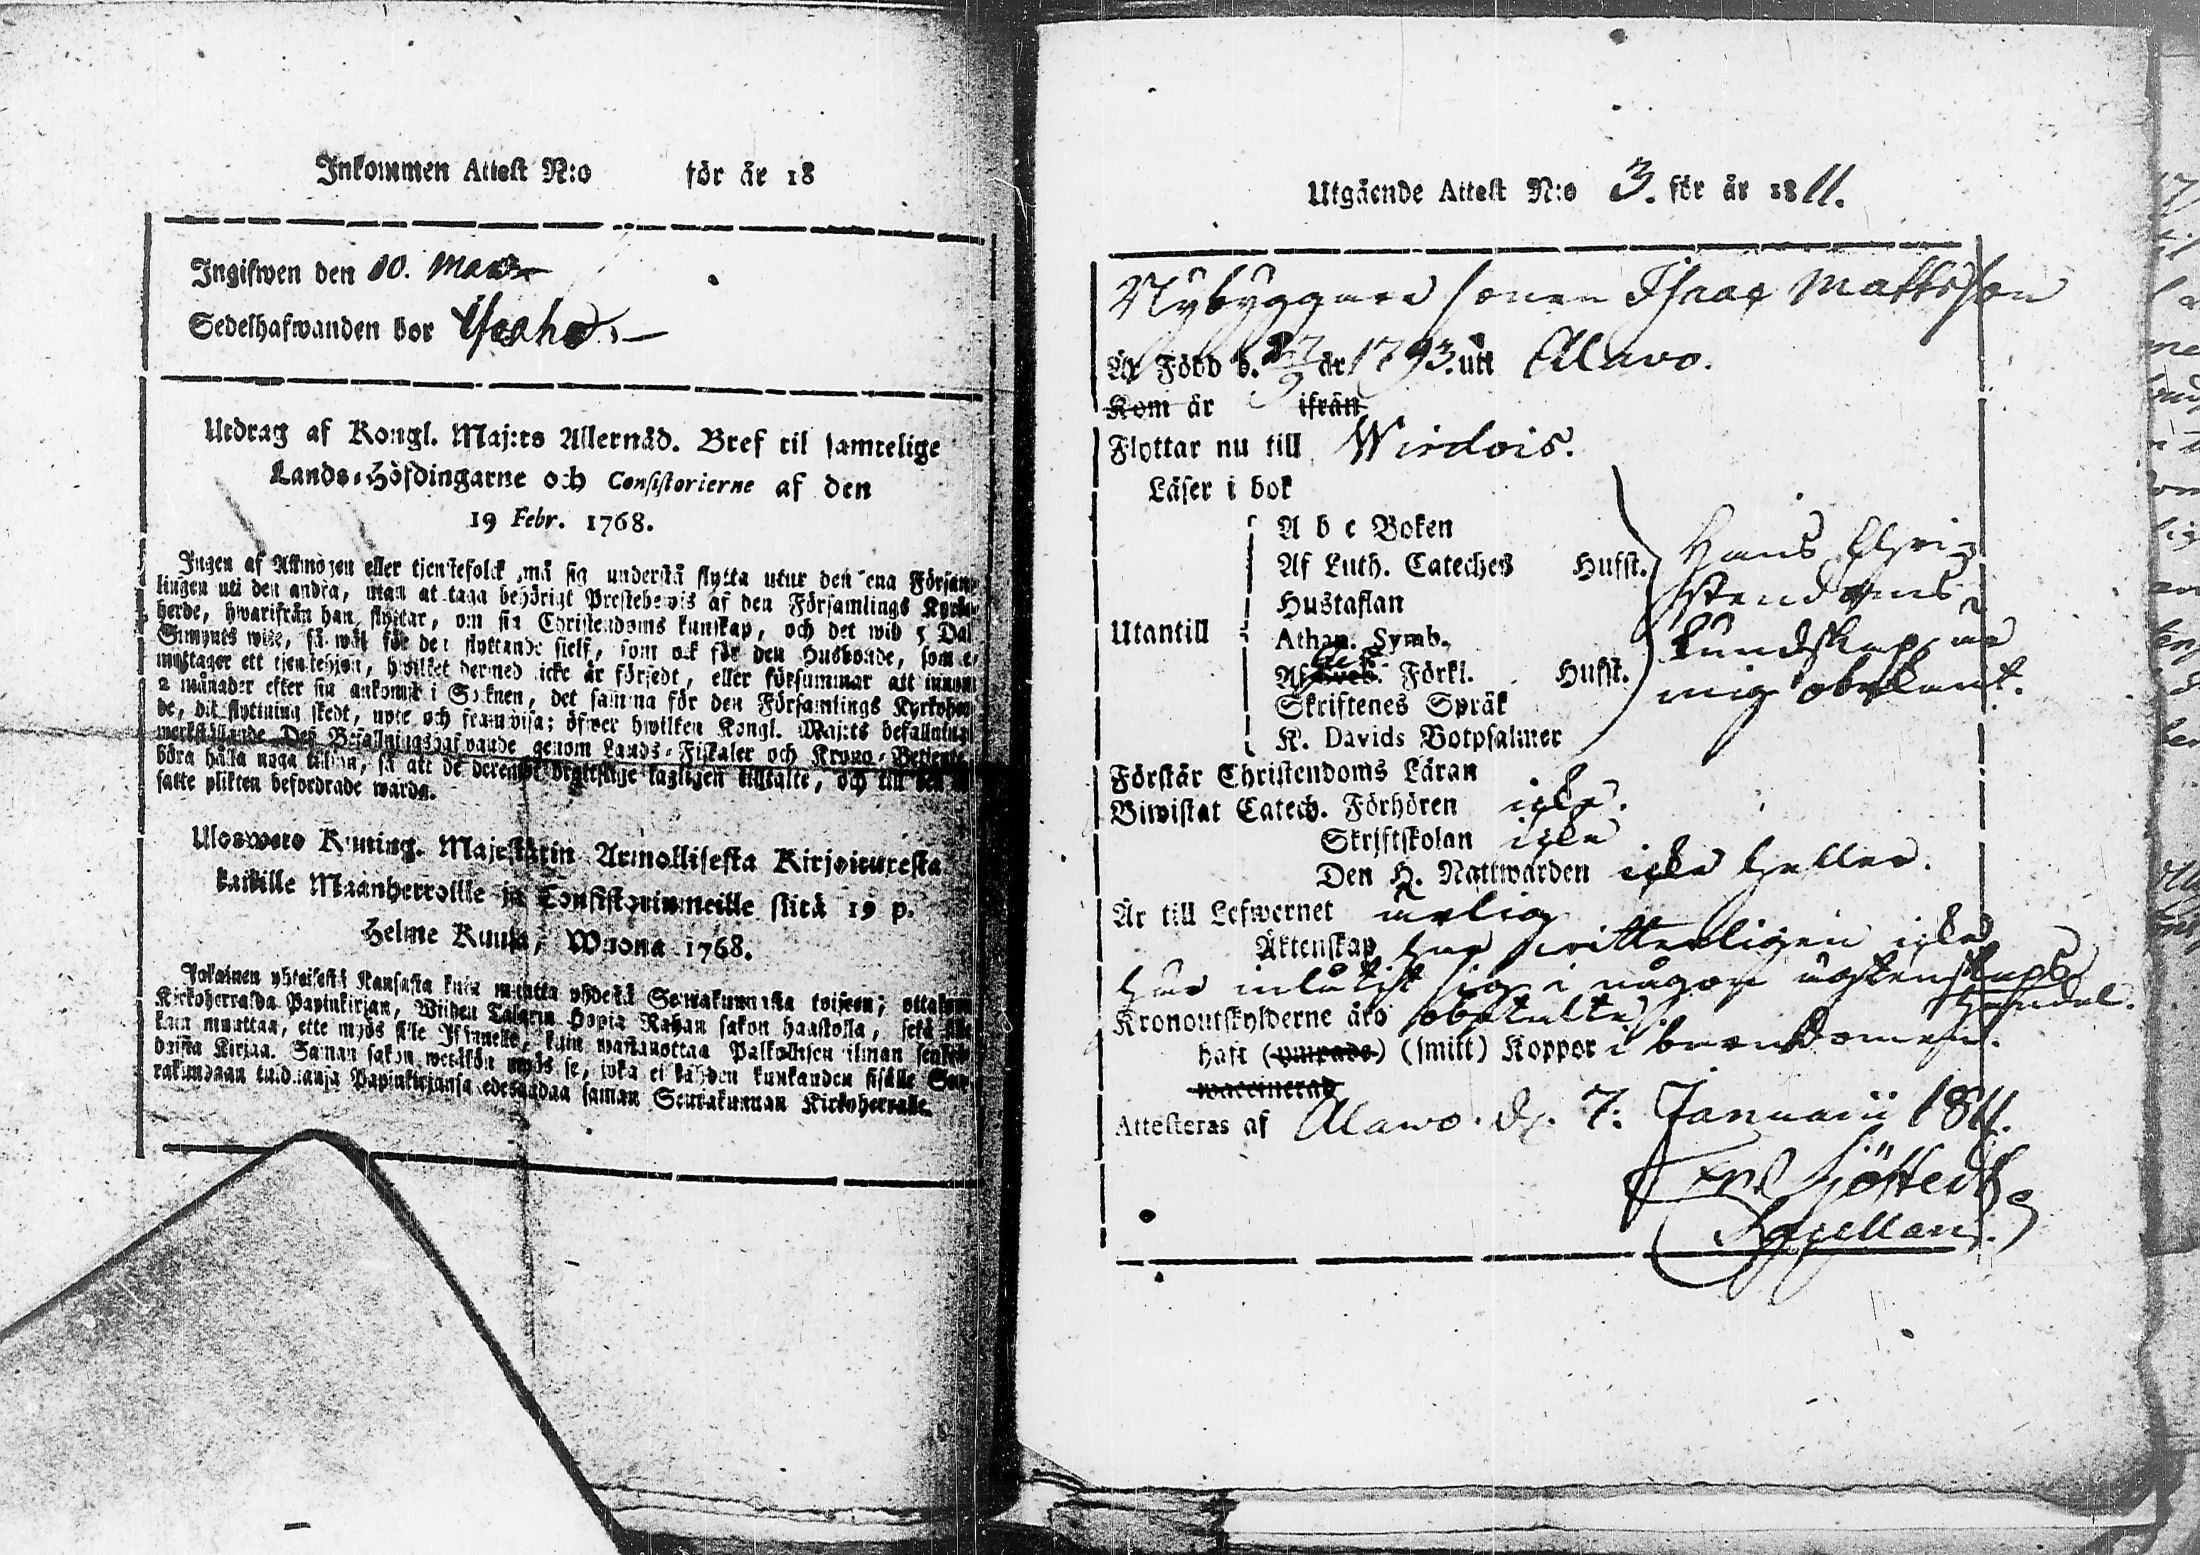 Inkommen Attest N:o för år 18
Ingifwen den 10. Mars
Sedelhafwanden bor
Utdrag af Kongl. Maj:ts Allernåd. Bref til samtelige
Lands-Höfdingarne och Consistorierne af den
19 Febr. 1768.
Ingen af Allmogen eller tjenstefolck må sig understå flytta utur den ena Försam-
lingen uti den andra, utan at taga behörigt Prestebewis af den Församlings Kyrko-
herde, hwarifrån han flyttar, om sin Christendoms kunskap, och det wid 5 Dal.
Smmynts wite, så wäl för den flyttande sielf, som ock för den Husbonde, som
mottager ett tjenstehjon, hwilket dermed icke är försedt, eller försummar att innom
2 månader efter sin ankomst i Socknen, det samma för den Församlings Kyrkoher-
de, dit flyttning skedt, upte och framwisa; öfwer hwilken Kongl. Maj:ts befallning
werkställande Dess Befallningshafwande genom Lands-Fiskaler och Krono-Betjente
böra hålla noga tilsyn, så att de deremot brottslige lagligen tilltalte, och till den
satte plikten befordrade warda.
Uloswero Kuning. Majestätin Armollisesta Kirjoituxesta
kaikille Maanherroille ja Consistoriumeille siitä 19 p.
Helme Kuusa, Wuona 1768.
Jokainen yhteisestä Kansasta kuin muutta yhdestä Seurakunnasta toiseen, ottakoon
Kirkoherralda Papinkirjan, Wiiden Talarin Hopia Rahan sakon haastolla, sekä
kuin muuttaa, ette myös sille Isännelle, kuin wastanottaa Palkollisen ilman senkal-
daista Kirjaa. Saman sakon wetäkön myös se, joka ei kahden kuukauden sisälle Seu-
rakundaan tuldianja Papinkirjansa edesandaa saman Seurakunnan Kirkoherralle.
Utgående Attest N:o 3. för år 1811.
Nybyggare sonen Isaac Mattsson
Är Född d. 27/9 år 1793. uti Alavo.
Kom år ifrån
Flyttar nu till Wirdois.
Läser i bok
A b c Boken
Af Luth. Cateches Hufst.
Hustaflan
Utantill
Athan. Symb.
Af Förkl. Hufst.
Skriftenes Språk
K. Davids Botpsalmer
Hans Chri-
stendoms
kundskap är
mig obekant.
Förstår Christendoms Läran
Biwistat Catech. Förhören icke.
Skriftskolan icke
Den H. Nattwarden icke heller.
Är till Lefwernet ärlig
Äktenskap har witterligen icke
har inlåtit sig i någon ägtenskaps
handel.
Kronoutskylderne äro obetalte
haft (ympade) (smitt) Koppor i barndomen.
waccinerad
Attesteras af Alawo. d. 7: Januarii 1811.
Sjöstedt
Capellan.